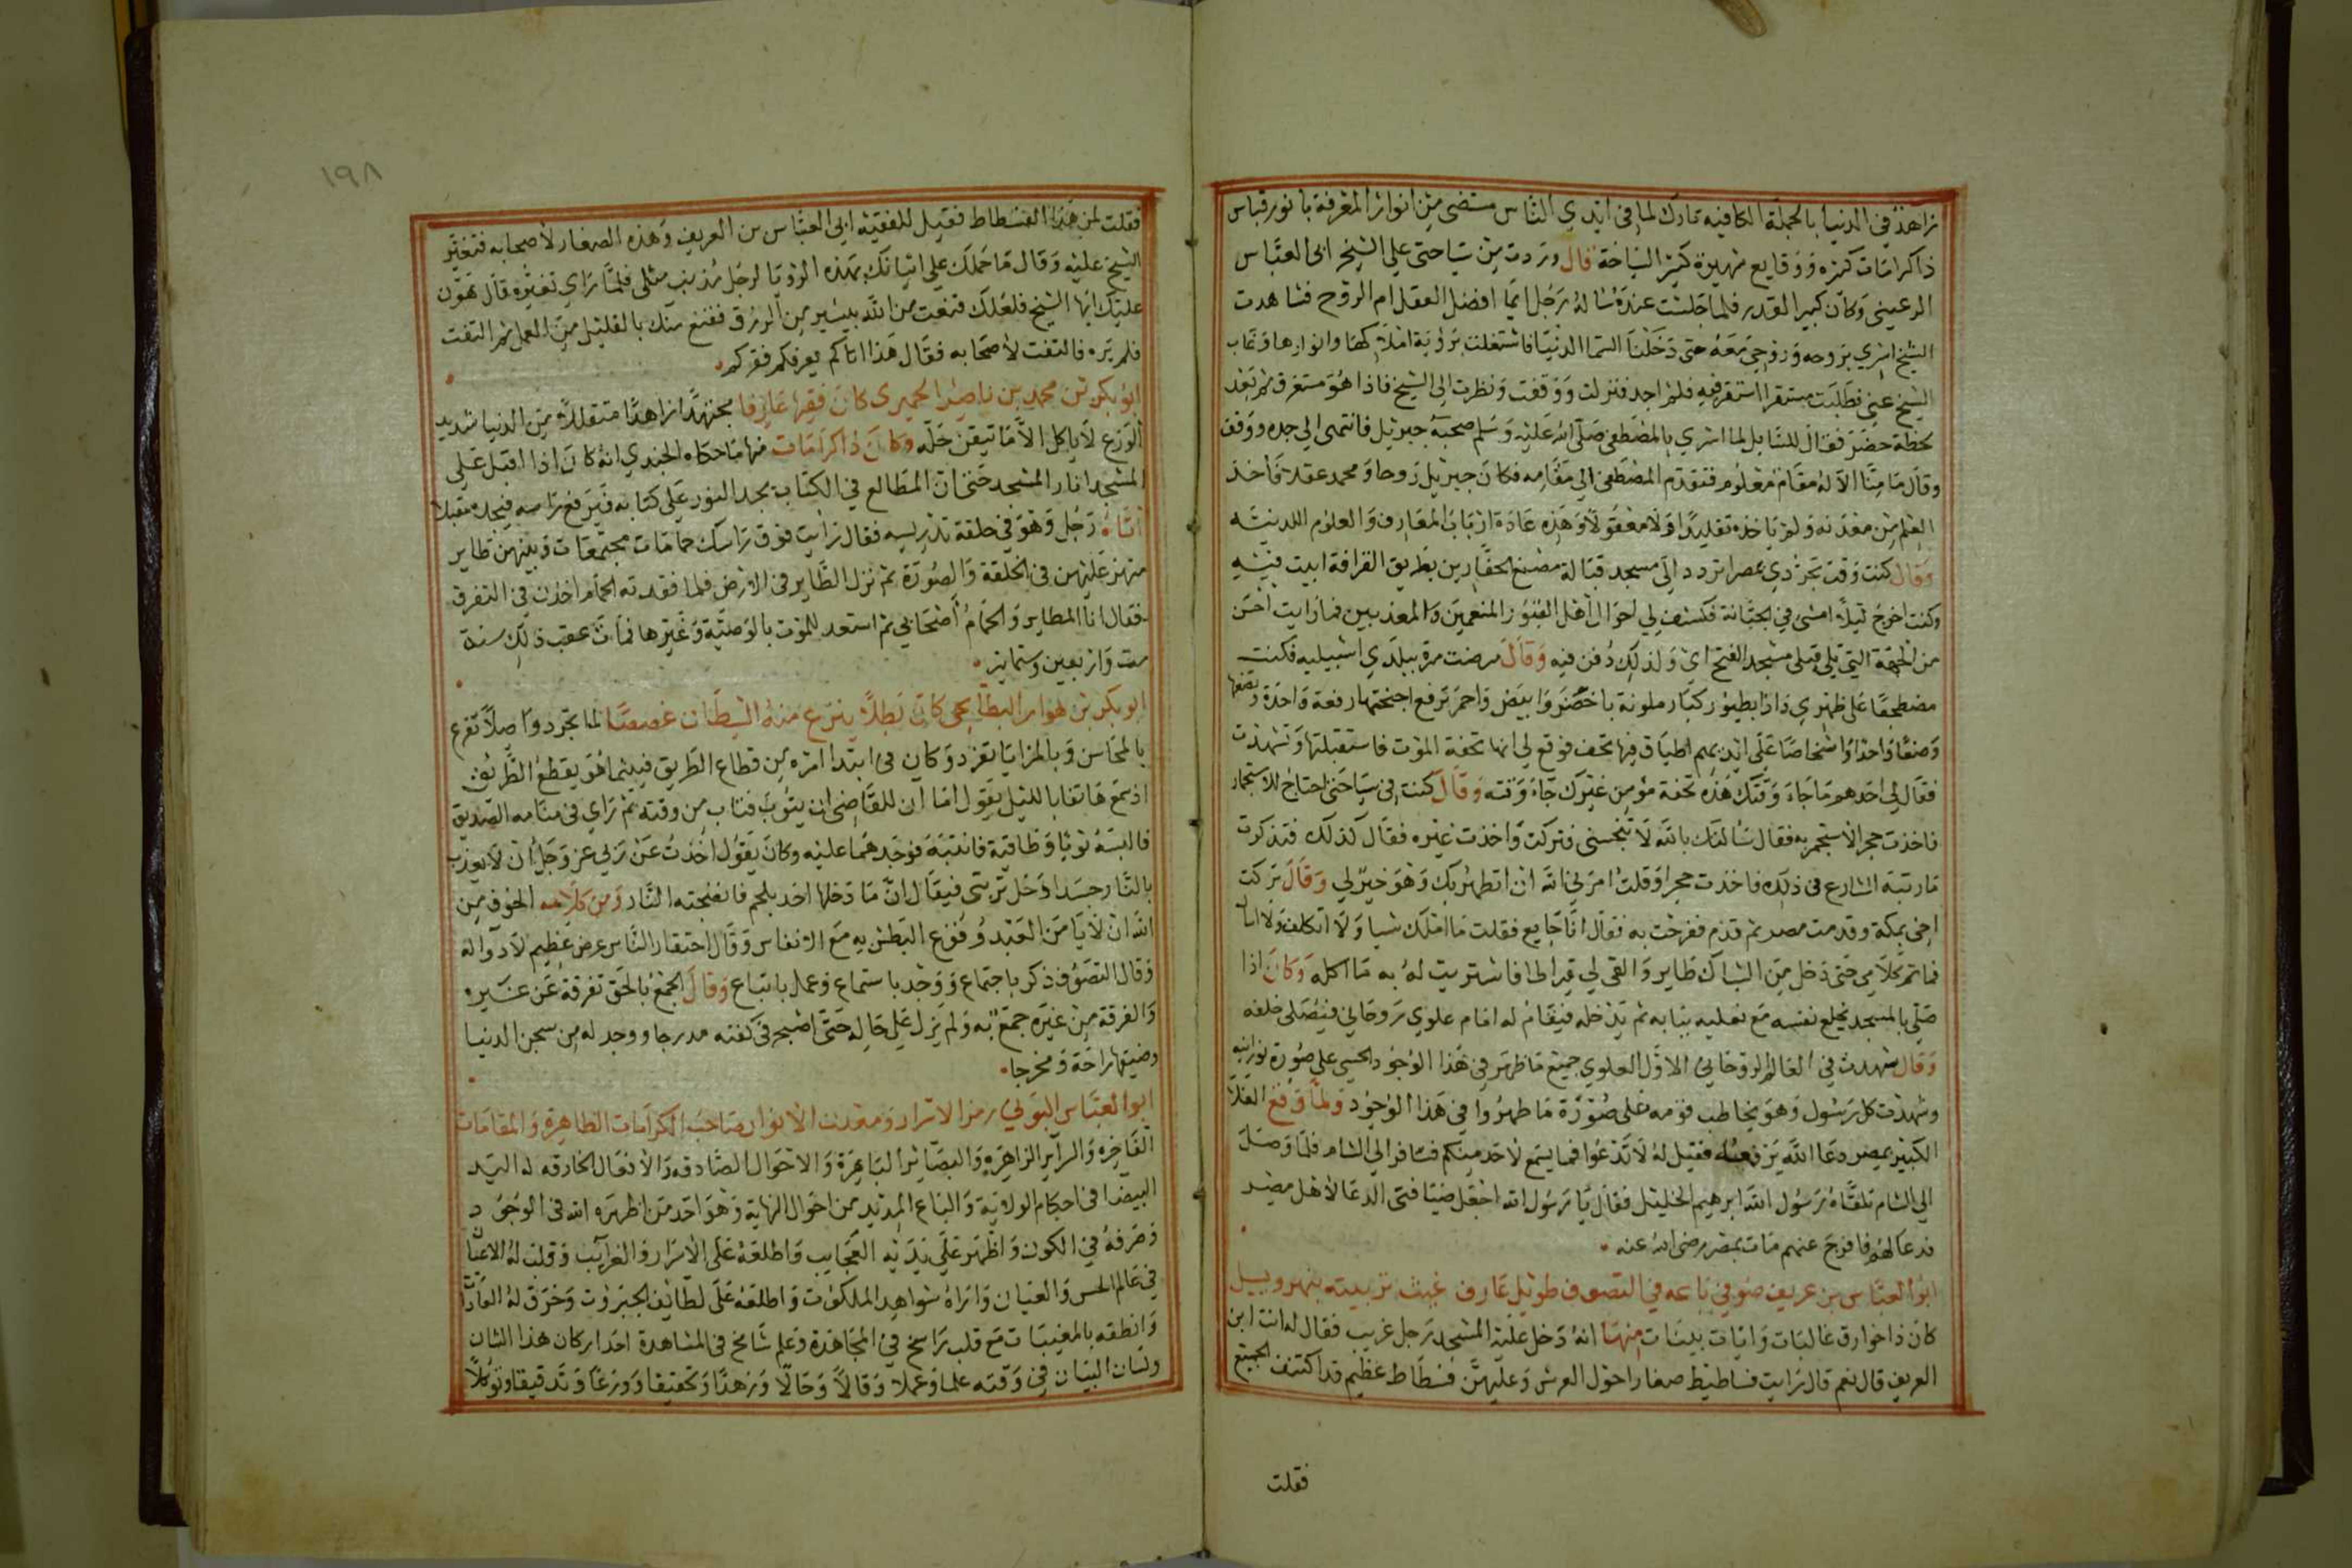 زاهد في الدنيا بالجملة الكافيه تارك لما في ايدي الناس مستضى من انوار المعرفة بانور قباس
ذا كرامات كثيره ووقايع شهيرة كثير السياحة قال وردت من سياحتى على الشيخ ابى العباس
الرعينى وكان كبير القدر فلما جلست عنده ساله رجل ايما افضل العقل ام الروح فشاهدت
الشيخ اسري بروحه وروحي معه حتى دخلنا السما الدنيا فاشتغلت برؤية املاكها وانوارها وغاب
الشيخ عني فطلبت مستقرا استقر فيه فلم اجد فنزلت ووقفت ونظرت الى الشيخ فاذا هو مستغرق ثم بعد
لحظة حضر فقال للسايل لما اسري بالمصطفى صلى الله عليه وسلم صحبة جبريل فانتهى الي حده ووقف
وقال ما منا الا له مقام معلوم فتقدم المصطفى الي مقامه فكان جبريل روحا ومحمد عقلا فاخذ
العلم من معدنه ولم ياخذه تقليدا ولا معقولا وهذه عادة ارباب المعارف والعلوم اللدنيه
وقال كنت وقت تجردي عصرا تردد الي مسجد قبالة مصنع الحفارين بطريق القرافة ابيت فيه
وكنت اخرج ليلا امشى في الجبانة فكشف لي احوال اهل القبور المنعمين والمعذبين فما رايت احسن
من الجهة التي تلي قبلى مسجد الفتح اي ولذلك دفن فيه وقال مرضت مرة ببلدي اشبيليه فكنت
مضطجعا على ظهري واذا بطيور كبار ملونة باخضر وابيض واحمر ترفع اجنحتها رفعة واحدة وتضعها
وضعا واحدا واشخاصا على ايديهم اطباق فيها تحف فوقع لي انها تحفة الموت فاستقبلتها وتشهدت
فقال لي احدهم ما جاء وقتك هذه تحفة مؤمن غيرك جاء وقته وقال كنت في سياحتى احتاج للاستجمار
فاخذت حجر الاستجمر به فقال سالتك بالله لا تنجسنى فتركت واخذت غيره فقال كذلك فتذكرت
ما رتبه الشارع في ذلك فاخذت حجرا وقلت امرني الله ان اتطهر بك وهو خير لي وقال تركت
اخى بمكة وقدمت مصر ثم قدم ففرحت به فقال انا جايع فقلت ما املك شيا ولا اتكلف ولا اسال
فما تم كلامي حتى دخل من الشباك طاير والقى لي قيراطا فاشتريت له به ما اكله وكان اذا
صلى بالمسجد يخلع نفسه مع نعليه ببابه ثم يدخله فيقام له امام علوي روحاني فيصلى خلفه
وقال شهدت في العالم الروحاني الاول العلوي جميع ما ظهر في هذا الوجود الحسي على صورة نورانيه
وشهدت كل رسول وهو يخاطب قومه على صورة ما ظهروا في هذا الوجود ولما وقع الغلا
الكبير بمصر دعا الله يرفعه فقيل له لا تدعوا فما يسمع لاحد منكم فسافر الي الشام فلما وصل
الي الشام تلقاه رسول الله ابرهيم الخليل فقال يا رسول الله اجعل ضيافتى الدعا لاهل مصر
فدعا لهم فافرج عنهم مات بمصر رضى الله عنه
ابو العباس بن عريف صوفي باعه في التصوف طويل عارف غيث تربيته ينهر ويسيل
كان ذا خوارق غاليات وايات بينات منها انه دخل عليه المسجد رجل غريب فقال له انت ابن
العريف قال نعم قال رايت فساطيط صغارا حول العرش وعليهن فسطاط عظيم قد اكتنف الجميع
فقلت
١٩٨
فقلت لمن هذا الفسطاط فقيل للفقيه ابى العباس بن العريف وهذه الصغار لاصحابه فتغير
الشيخ عليه وقال ما حملك على اتيانك بهذه الرؤيا لرجل مذنب مثلى فلما راي تغيره قال هون
عليك ايها الشيخ فلعلك قنعت من الله بيسير من الرزق فقنع منك بالقليل من العمل ثم التفت
فلم يره فالتفت لاصحابه فقال هذا اتاكم يعرفكم فقركم
ابو بكر بن محمد بن ناصر الحميرى كان فقيها عارفا مجتهدا زاهدا متقللا من الدنيا شديد
الورع لا ياكل الا ما تيقن حله وكان ذا كرامات منها ما حكاه الجندي انه كان اذا اقبل على
المسجد انار المسجد حتى ان المطالع في الكتاب يجد النور على كتابه فيرفع راسه فيجده مقبلا
اتاه رجل وهو في حلقة تدريسه فقال رايت فوق راسك حمامات مجتمعات وبينهن طاير
متميز عليهن في الخلقة والصورة ثم نزل الطاير في الارض فلما فقدته الحمام اخذن في التفرق
فقال انا الطاير والحمام اصحابي ثم استعد للموت بالوصية وغيرها فمات عقب ذلك سنة
ست واربعين وستماية
ابو بكر بن هوار البطايحى كان بطلا ينزع منه الشيطان غصصا لما تجرد واصلا تفرع
بالمحاسن وبالمزايا تفرد وكان في ابتدا امره من قطاع الطريق فبينما هو يقطع الطريق
اذ سمع هاتفا بالليل يقول اما ان للقاضى ان يتوب فتاب من وقته ثم راي في منامه الصديق
فالبسه ثوبا وطاقية فانتبه فوجدهما عليه وكان يقول اخذت عن ربي عز وجل ان لا يعذب
بالنار جسدا دخل تربتى فيقال ان ما دخلها احد بلحم فانضجته النار ومن كلامه الخوف من
الله ان لا يامن العبد وقوع البطش به مع الانفاس وقال احتقار الناس مرض عظيم لا دوا له
وقال التصوف ذكر باجتماع ووجد باستماع وعمل باتباع وقال الجمع بالحق تفرقة عن غيره
والفرقة من غيره جمع به ولم يزل على حاله حتى اصبح في كفنه مدرجا ووجد له من سجن الدنيا
وضيقها راحة ومخرجا
ابو العباس البوني رمز الاسرار ومعدن الانوار صاحب الكرامات الظاهرة والمقامات
الفاخره والسراير الزاهره والبصاير الباهرة والاحوال الصادقه والافعال الخارقه له اليد
البيضا في احكام الولاية والباع المديد من احوال النهاية وهو احد من اظهره الله في الوجود
وصرفه في الكون واظهر على يديه العجايب واطلعه على الاسرار والغرايب وقلبت له الاعيان
في عالم الحس والعيان واراه شواهد الملكوت واطلعه على لطايف الجبروت وخرق له العادات
وانطقه بالمغيبات مع قلب راسخ في المجاهدة وعلم شامخ في المشاهدة احد اركان هذا الشان
ولسان البيان في وقته علما وعملا وقالا وحالا وزهدا وتحقيقا وورعا وتدقيقا وتوكلا